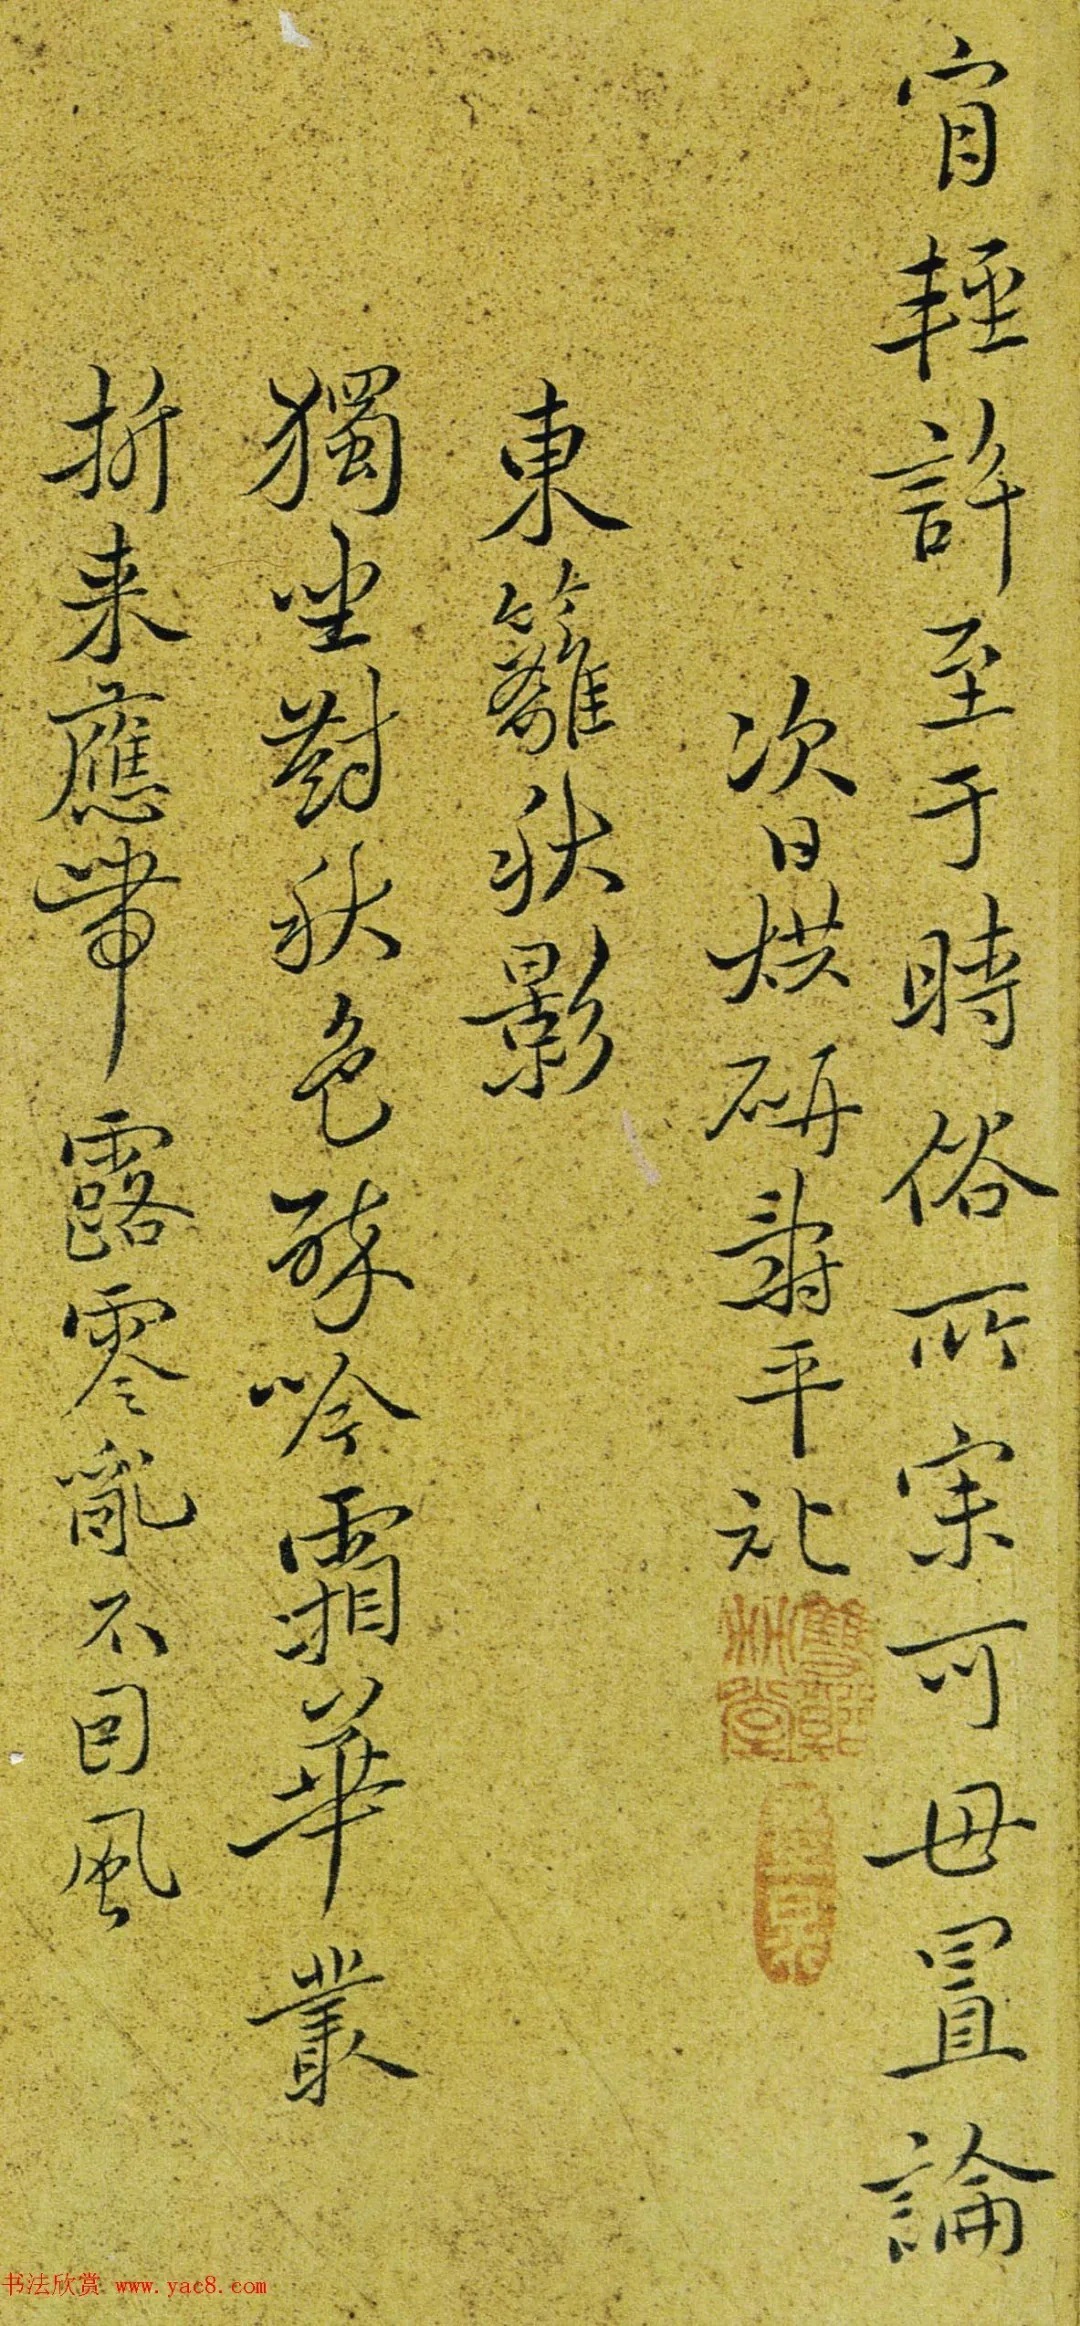 肎輕許至于時俗所宗可毋置論
次日烘研壽平記
東籬秋影
獨坐對秋色醉吟霜華叢
折来應帶露零亂不因風
书法欣赏 www.yac8.com